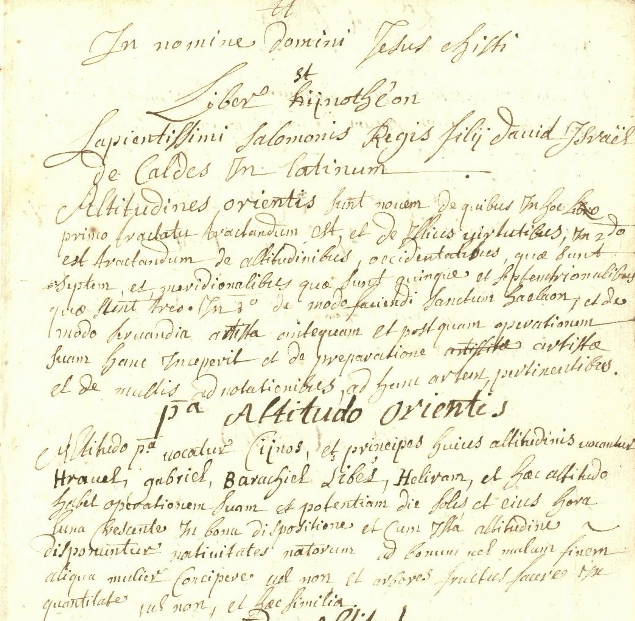 In nomine Domini Jesus chisti
st
Liber hijnothéon
Sapientissimi Salomonis Regis filij david Israël
de Caldes In latinum
Altitudines orientis sunt novem de quibus In hoc libro
primo tractatu tractandum est, et de Illius virtutibus, In 2do
est tractandum de altitudinibus, occidentalibus, quæ sunt
septem, et, meridionalibus quæ sunt quinque et septentrionalibus
quæ sunt tres. In 3o de modo faciendi sanctum haelaon, et de
modo servandia artista antequam et postquam operationem
suam hanc Inceperit et de preparatione artistæ artistæ
et de multis adnotationibus, ad hunc artem, pertinentibus.
pa Altitudo Orientis
Altitudo pa vocatur Cijnos, et principes huius altitudinis vocantur
Hrauel, gabriel, Barachiel Libes, Heliram, et hæc altitudo
habet operationem suam et potentiam die solis et eius hora
luna Crescente In bona dispositione et Cum Ista altitudine
disponuntur nativitates natorum ad bonum vel malum finem
aliqua mulier Concipere vel non et arbores fructus facere
quantitate vel non, et hæc similia